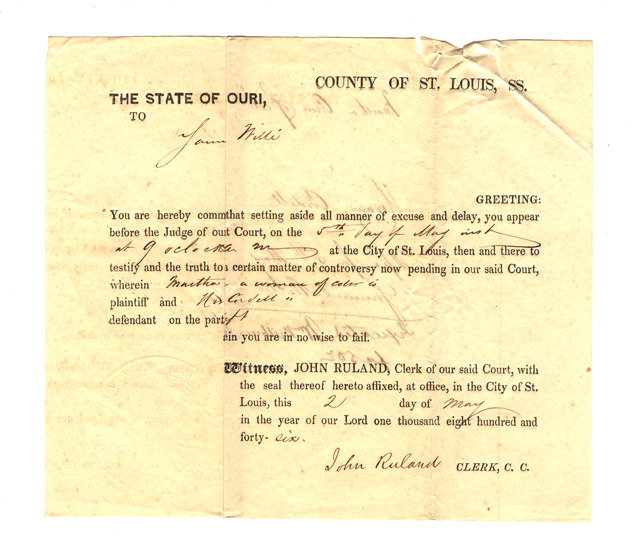 COUNTY OF ST. LOUIS, SS.
THE STATE OF OURI,
TO
Willi
GREETING:
You are hereby commthat setting aside all manner of excuse and delay, you appear
before the Judge of out Court, on the 5th day of May inst
at 9 oclock m at the City of St. Louis, then and there to
testify and the truth to a certain matter of controversy now pending in our said Court,
wherein Martha a woman of color is
plaintiff and Cordell is
defendant on the part
ein you are in no wise to fail.
Witness, JOHN RULAND, Clerk of our said Court, with
the seal thereof hereto affixed, at office, in the City of St.
Louis, this 2 day of May
in the year of our Lord one thousand eight hundred and
forty- six.
John Ruland CLERK, C. C.